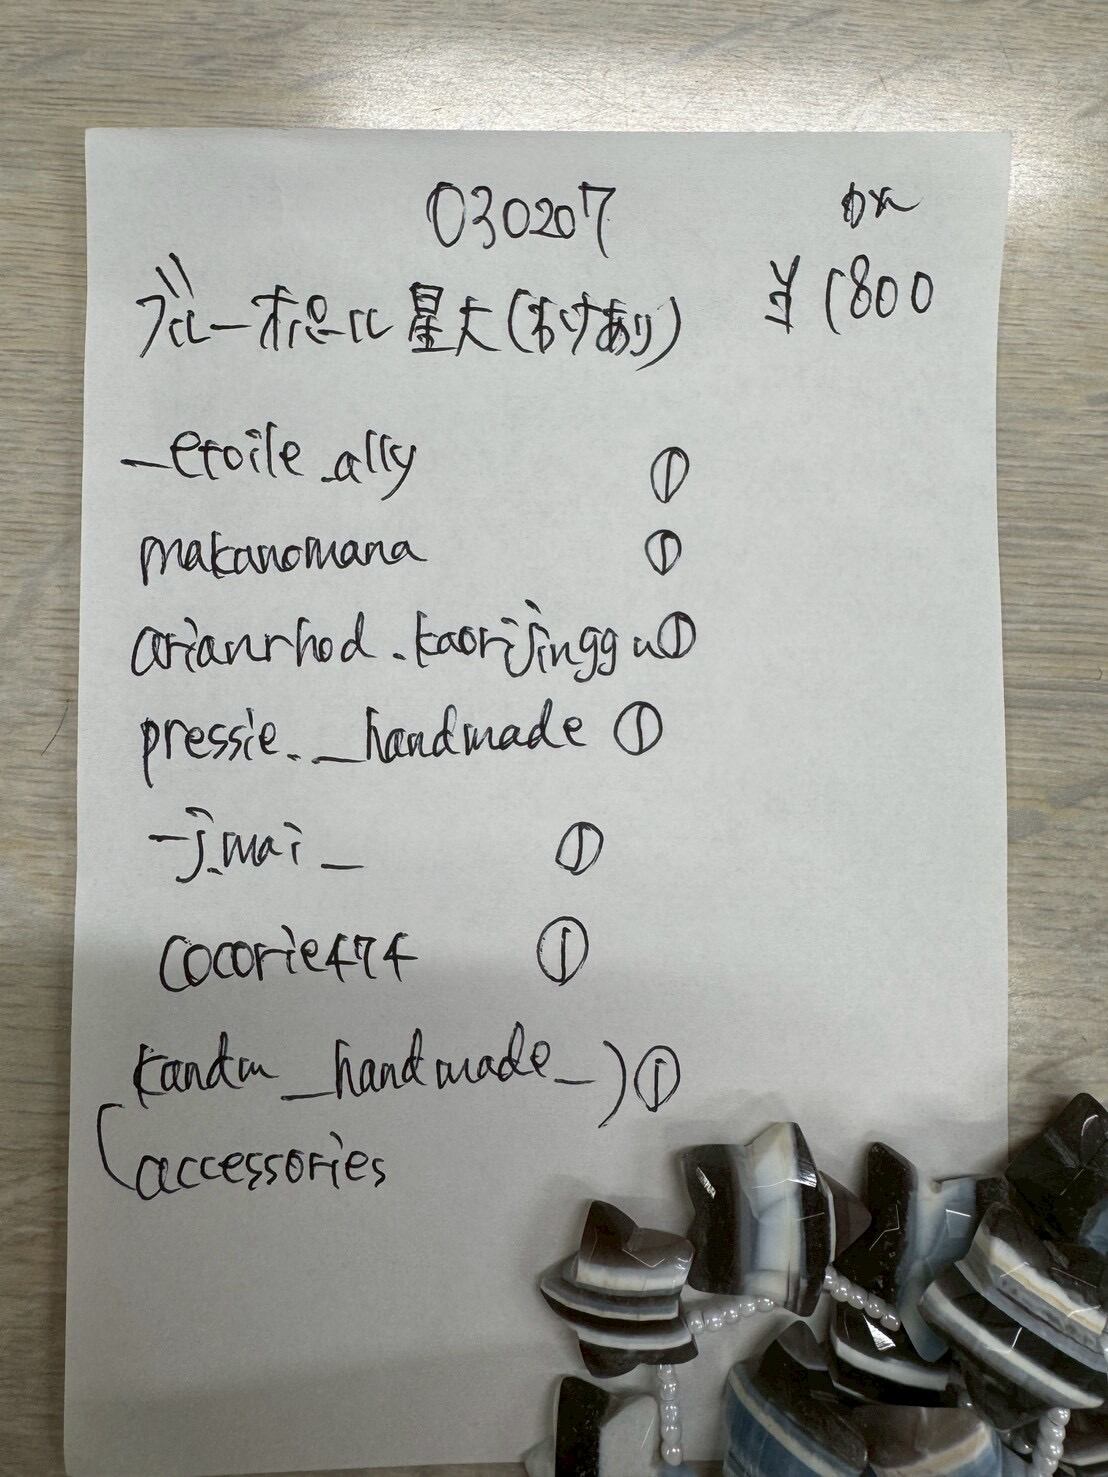 030207
ブルーオパール 星大(わけあり) ¥1800
_etoile_ally ①
makanomana ①
arianrhod.kaorijinggu ①
pressie._handmade ①
_j.mai_ ①
cocorie474 ①
kandm_handmade_ ①
accessories